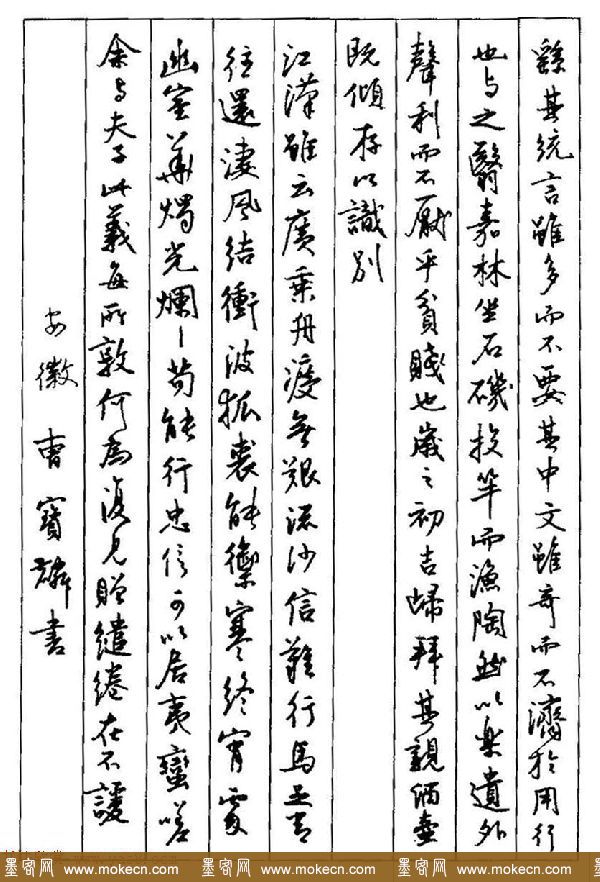 繇其統言雖多而不要其中文雖奇而不濟於用行
也与之翳嘉林坐石磯投竿而漁陶然以樂遺外
聲利而不厭乎貧賤也歲之初吉歸拜其親酒壺
既傾存以識別
江漢雖云廣乘舟渡無艱流沙信難行馬足常
往還淒風結衝波狐裘能禦寒終宵處
幽室華燭光爛爛苟能行忠信可以居夷蠻嗟
余与夫子此義每所敦何為復見贈繾綣在不諼
安徽 曹寶麟書
墨客网 www.mokecn.com 墨客网 www.mokecn.com 墨客网 www.mokecn.com